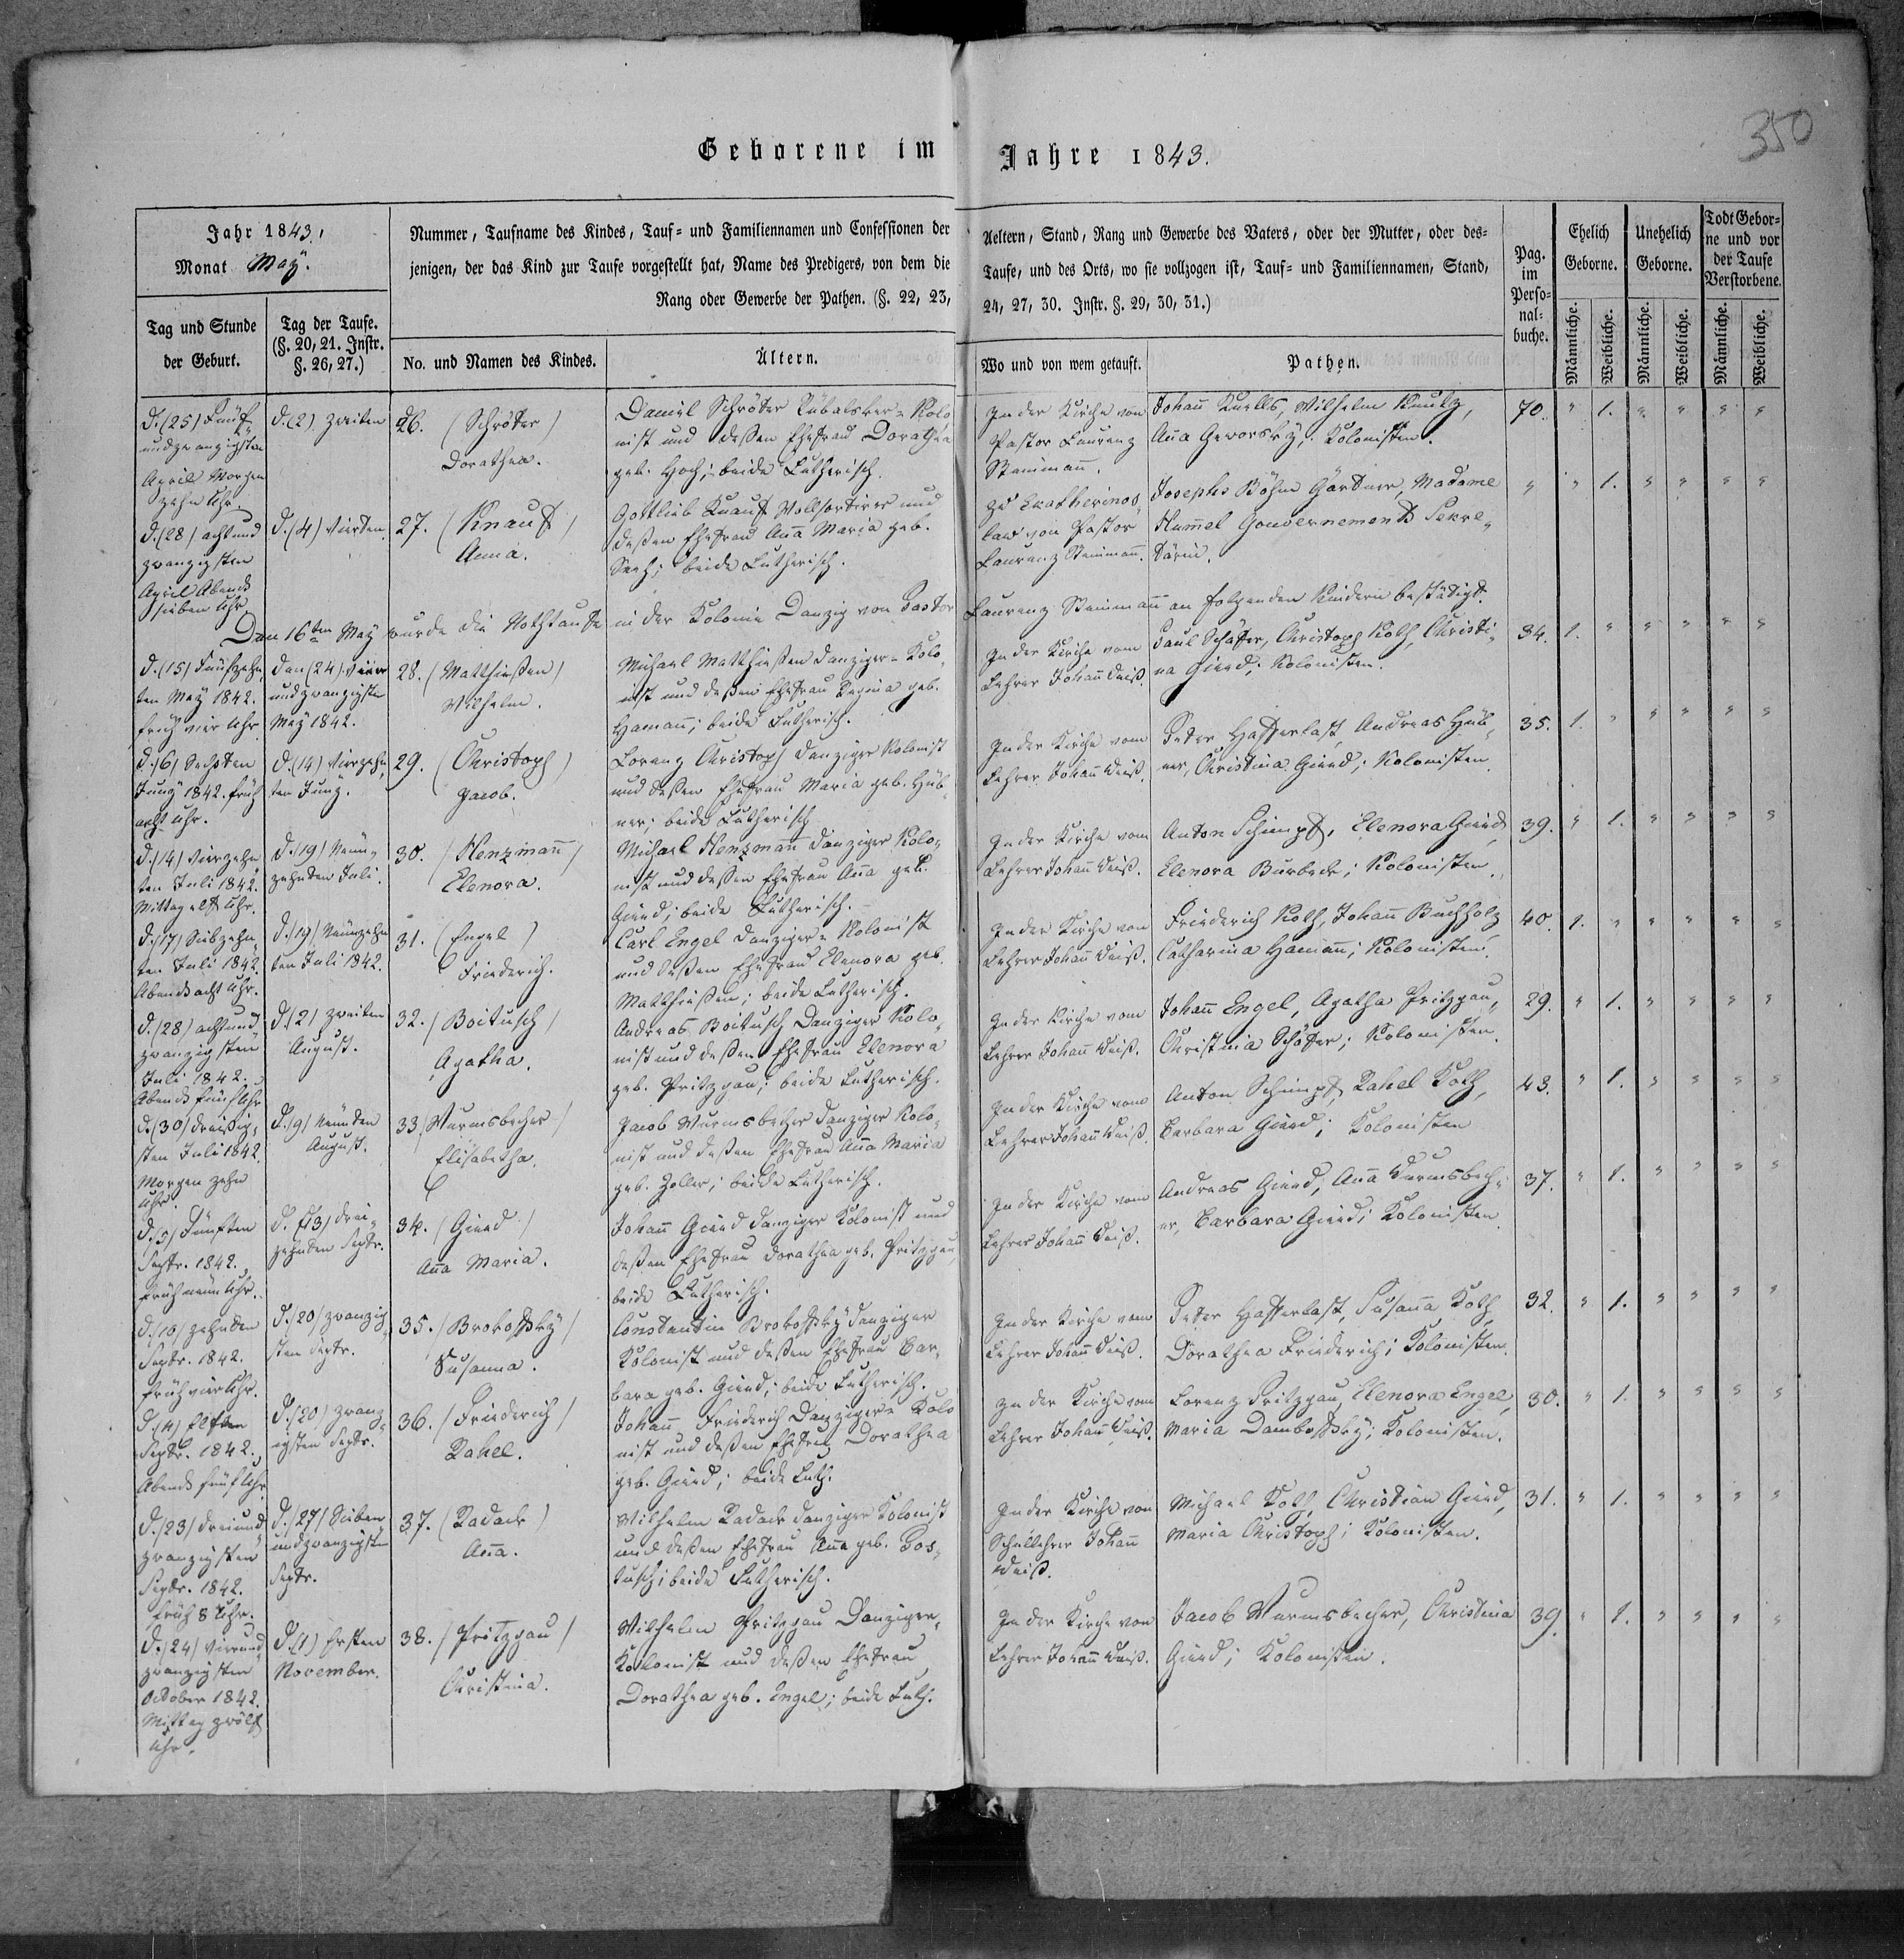 350
Geborene im Jahre 1843.
Jahr 1843,
Monat May.
Nummer, Taufname des Kindes, Tauf- und Familiennamen und Confessionen der Aeltern, Stand, Rang und Gewerbe des Vaters, oder der Mutter, oder des-
jenigen, der das Kind zur Taufe vorgestellt hat, Name des Predigers, von dem die Taufe, und des Orts, wo sie vollzogen ist, Tauf- und Familiennamen, Stand,
Rang oder Gewerbe der Pathen. (§. 22, 23, 24, 27, 30. Instr. §. 29, 30, 31.)
Pag.
im
Perso-
nal-
buche.
Ehelich
Geborne.
Unehelich
Geborne.
Todt Gebor-
ne und vor
der Taufe
Verstorbene.
Tag und Stunde
der Geburt.
Tag der Taufe.
(§. 20, 21. Instr.
§. 26, 27.)
No. und Namen des Kindes.
Ältern.
Wo und von wem getauft.
Pathen.
Männliche.
Weibliche.
Männliche.
Weibliche.
Männliche.
Weibliche.
d. (25) Fünf
undzwanzigsten
April Morgen
zehn Uhr.
d. (2) zweiten
26. (Schröter)
Dorathea.
Daniel Schröter Kolo
nist und deßen Ehefrau Dorathea
geb. Hoch; beide Lutherisch.
In der Kirche von
Pastor Laurenz
Steinmann.
Johann Knells, Wilhelm
Anna Geworsky; Kolonisten.
70. " 1. " " " "
d. (28) acht und
zwanzigsten
April Abends
sieben Uhr
d. (4) vierten.
27. (Knauf)
Anna.
Gottlieb Knauf Wollsortirer und
deßen Ehefrau Anna Maria geb.
beide Lutherisch.
zu Ekatherinos,
law von Pastor
Laurenz Steinmann.
Josephs Böhm Gärtner, Madame
Hummel Gouvernements Sekre,
tärin.
" " 1. " " " "
Den 16ten May wurde die Nothtaufe in der Kolonie Danzig von Pastor Laurenz Steinmann an folgenden Kindern bestätigt.
d. (15) Fünfzehn,
ten May 1842.
früh vier Uhr.
den (24) vier
undzwanzigsten
May 1842.
28. (Matthießen)
Wilhelm.
Michael Matthießen Danziger-Kolo,
nist und deßen Ehefrau Regina geb.
Hamann; beide Lutherisch.
In der Kirche vom
Lehrer Johann Weiß.
Paul Schäfer, Christoph Koth, Christi,
na Giend; Kolonisten.
34. 1. " " " " "
d. (6) Sechsten
Juny 1842. früh
acht Uhr.
d. (14) vierzehn,
ten Juny.
29. (Christoph)
Jacob.
Lorenz Christoph Danziger Kolonist
und deßen Ehefrau Maria geb. Hüb,
ner; beide Lutherisch
In der Kirche vom
Lehrer Johann Weiß.
Peter Hasterlast, Andreas Hüb,
ner, Christina Giend; Kolonisten.
35. 1. " " " " "
d. (14) vierzehn,
ten Juli 1842.
Mittag elf Uhr.
d. (19) Neun,
zehnten Juli.
30. (Henzmann)
Elenora.
Michael Henzmann Danziger Kolo,
nist und deßen Ehefrau Anna geb.
Giend; beide Lutherisch.
In der Kirche vom
Lehrer Johann Weiß.
Anton Schimpf, Elenora Giend
Elenora Kolonisten.
39. " 1. " " " "
d. (17) Siebzehn,
ten Juli 1842.
Abends acht Uhr.
d. (19) Neunzehn
ten Juli 1842.
31. (Engel)
Friederich.
Carl Engel Danziger-Kolonist
und deßen Ehefrau Elenora geb.
Matthießen; beide Lutherisch.
In der Kirche von
Lehrer Johann Weiß.
Friederich Koth, Johann Buchholz
Catharina Hamann; Kolonisten.
40. 1. " " " " "
d. (28) acht und
zwanzigsten
Juli 1842.
Abends fünf Uhr
d. (2) zweiten
August.
32. (Boitusch)
Agatha.
Andreas Boitusch Danziger Kolo,
nist und deßen Ehefrau Elenora
geb. Pritzgau; beide Lutherisch.
In der Kirche vom
Lehrer Johann Weiß.
Johann Engel, Agatha Pritzgau,
Christina Schäfer; Kolonisten.
29. " 1. " " " "
d. (30) dreißig,
sten Juli 1842.
Morgen zehn
Uhr.
d. (9) Neunten
August.
33. (Wurmsbecher)
Elisabetha.
Jacob Wurmsbecher Danziger Kolo,
nist und deßen Ehefrau Anna Maria
geb. Zoller; beide Lutherisch.
In der Kirche vom
Lehrer Johann Weiß.
Anton Schimpf, Rahel Koth,
Barbara Giend; Kolonisten
43. " 1. " " " "
d. (5) Fünften
Septr. 1842.
früh neun Uhr.
d. (13) drei,
zehnten Septr.
34. (Giend)
Anna Maria.
Johann Giend Danziger Kolonist und
deßen Ehefrau Dorathea geb. Pritzgau,
beide Lutherisch.
In der Kirche vom
Lehrer Johann Weiß.
Andreas Giend, Anna Wurmsbech,
er, Barbara Giend; Kolonisten.
37. " 1. " " " "
d. (10) zehnten
Septr. 1842.
früh vier Uhr.
d. (20) zwanzig,
sten Septr.
35. (Brokofsky)
Susanna.
Constantin Brokofsky Danziger
Kolonist und deßen Ehefrau Bar,
bara geb. Giend; beide Lutherisch.
In der Kirche vom
Lehrer Johann Weiß.
Peter Hasterlast, Susanna Koth,
Dorathea Friederich; Kolonisten.
32. " 1. " " " "
d. (11) Elften
Septr. 1842.
Abends fünf Uhr
d. (20) zwanz,
igsten Septr.
36. (Friederich)
Rahel.
Johann Friederich Danziger-Kolo
nist und deßen Ehefrau Dorathea
geb. Giend; beide Luth.
In der Kirche vom
Lehrer Johann Weiß.
Lorenz Pritzgau, Elenora Engel,
Maria Dambofsky; Kolonisten.
30. " 1. " " " "
d. (23) drei und
zwanzigsten
Septr. 1842.
früh 8 Uhr.
d. (27) Sieben
undzwanzigsten
Septr.
37. (Radack)
Anna.
Wilhelm Radack Danziger Kolonist
und deßen Ehefrau Anna geb. Bos,
tusch; beide Lutherisch.
In der Kirche von
Schullehrer Johann
Weiß.
Michael Koth, Christian Giend,
Maria Christoph; Kolonisten.
31. " 1. " " " "
d. (24) vierund,
zwanzigsten
October 1842.
Mittag zwölf
Uhr.
d. (1) Ersten
November.
38. (Pritzgau)
Christina.
Wilhelm Pritzgau Danziger-
Kolonist und deßen Ehefrau
Dorathea geb. Engel; beide Luth.
In der Kirche von
Lehrer Johann Weiß.
Jacob Wurmsbecher, Christina
Giend; Kolonisten.
39. " 1. " " " "